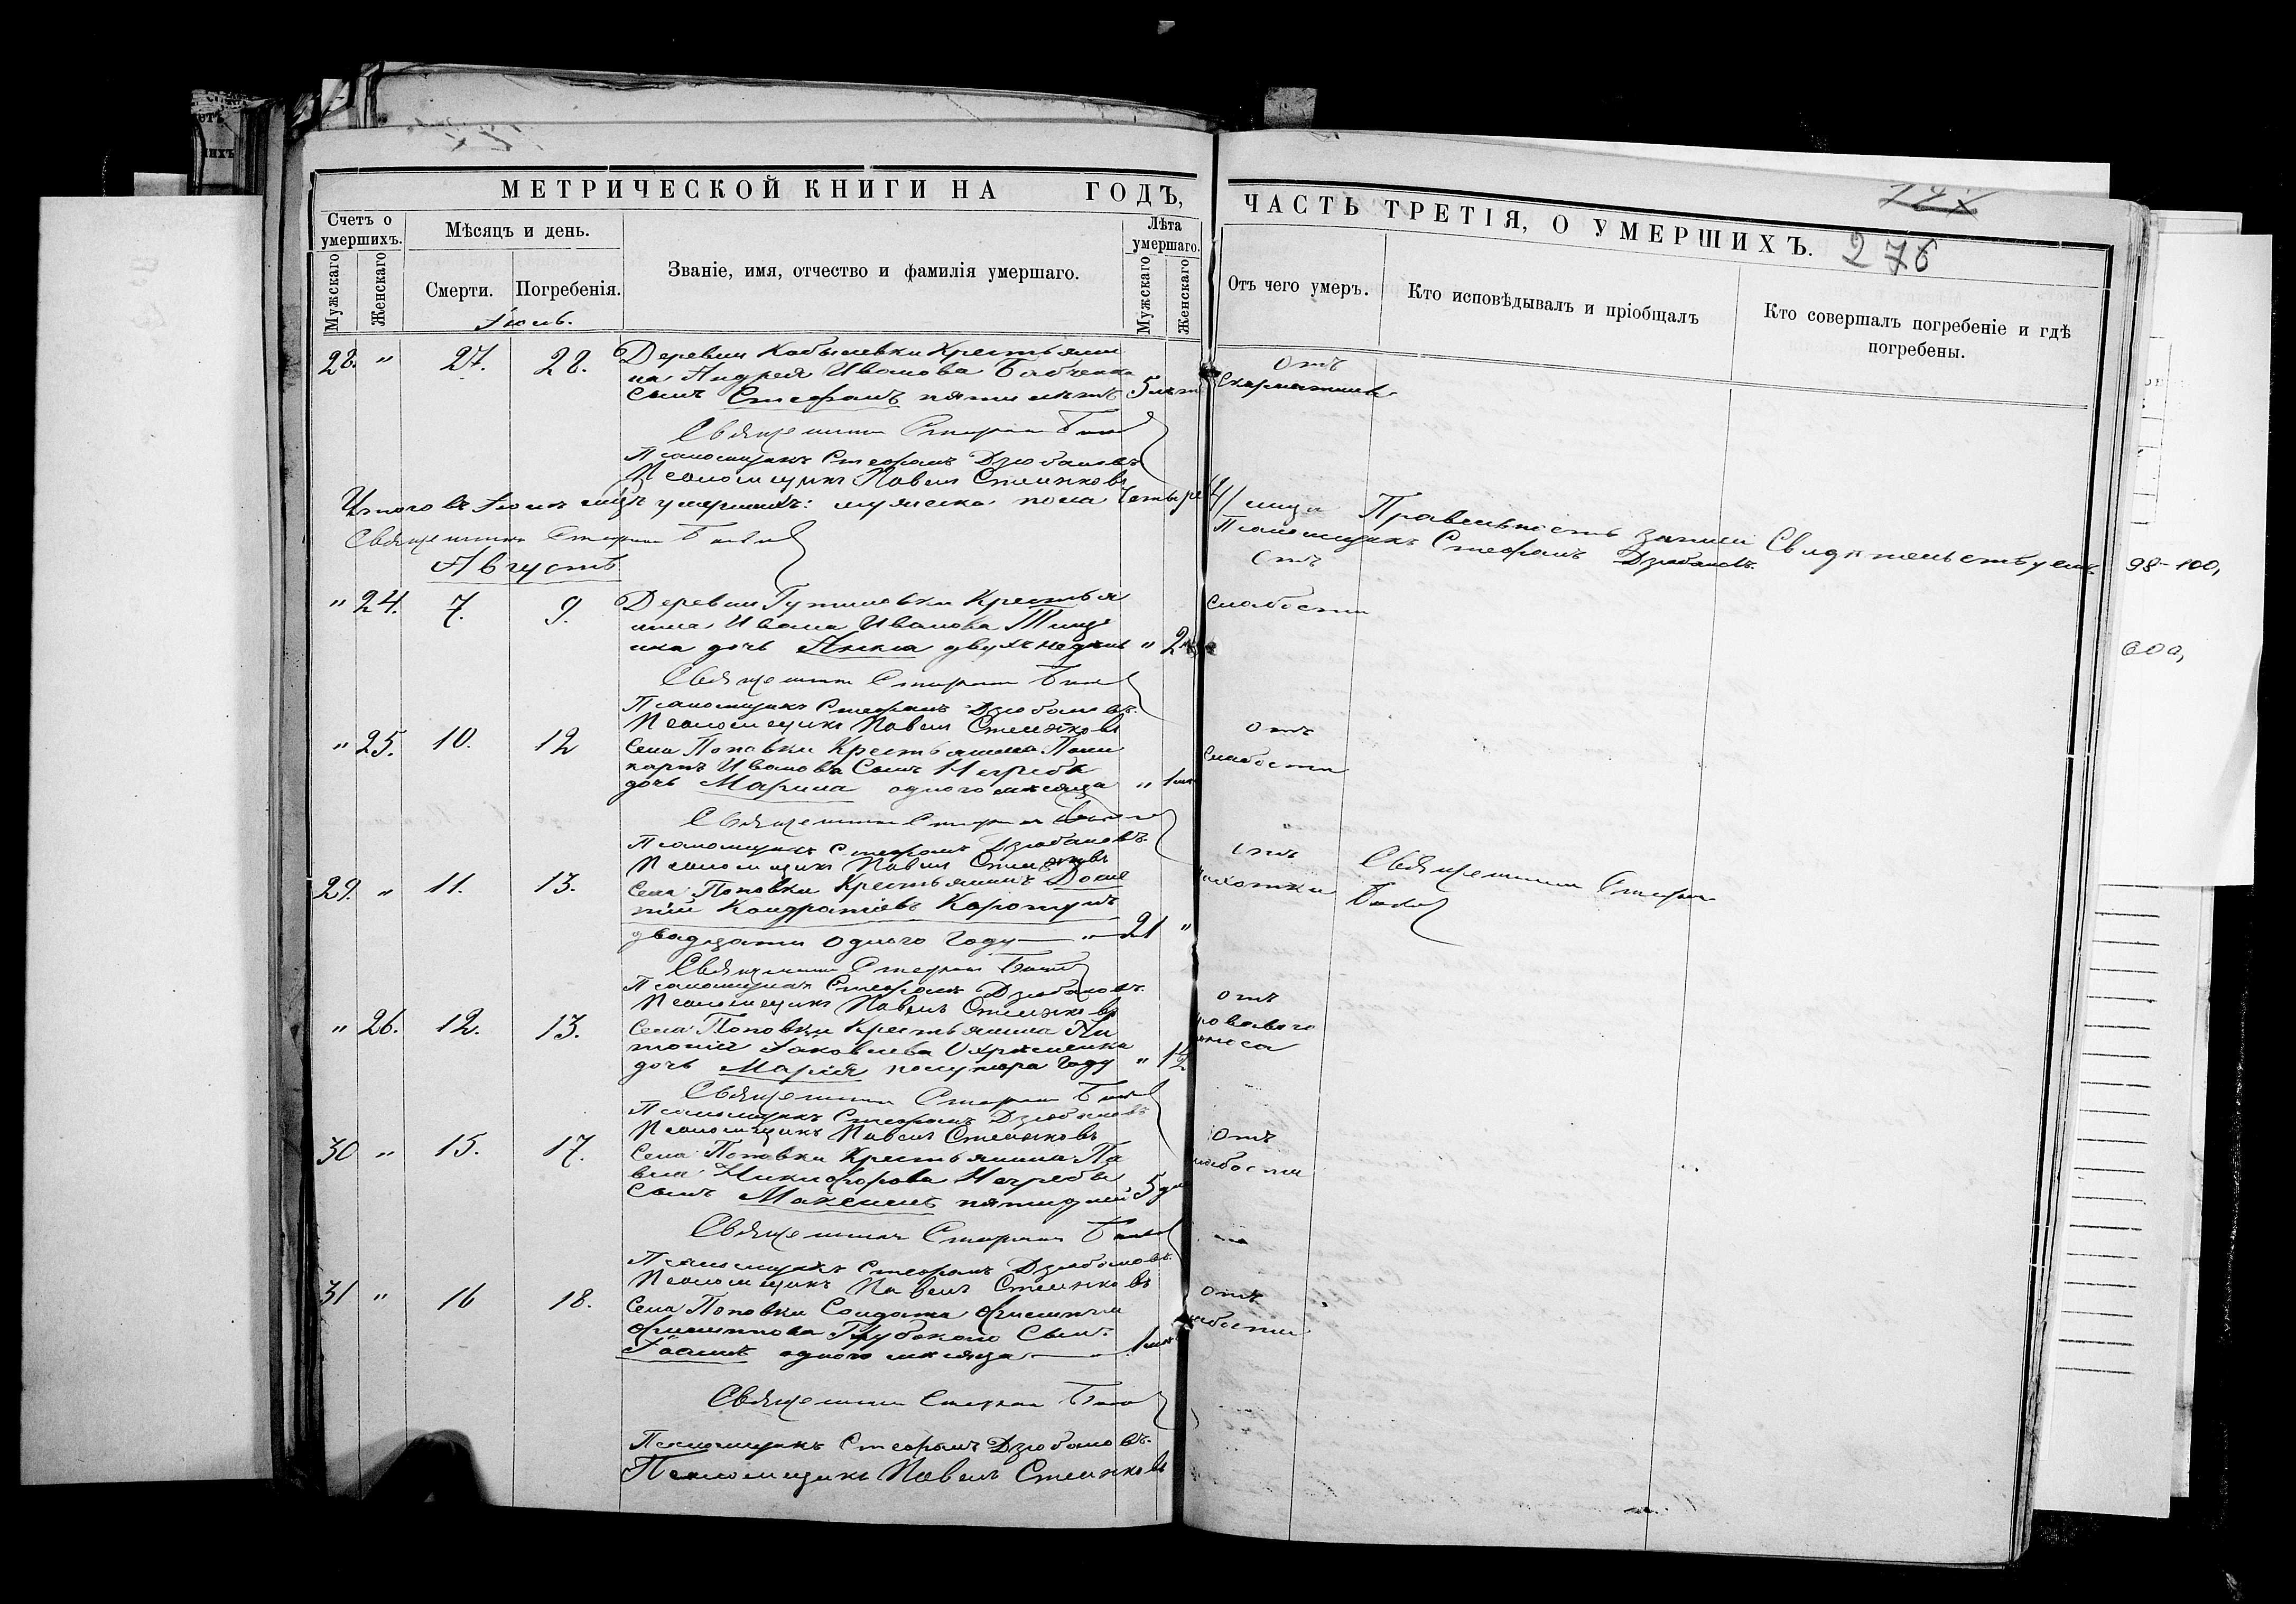 МЕТРИЧЕСКОЙ КНИГИ НА ГОДЪ,
ЧАСТЬ ТРЕТІЯ, О УМЕРШИХЪ. 276
Счетъ о умершихъ.
Мѣсяцъ и день.
Званіе, имя, отчество и фамилія умершаго.
Лѣта умершаго.
Мужскаго
Женскаго
Смерти.
Погребенія.
Мужскаго
Женскаго
Отъ чего умеръ.
Кто исповѣдывалъ и пріобщалъ
Кто совершалъ погребеніе и гдѣ погребены.
28. " 27. 28. Деревни Кобылевки Крестьяни
на Андрея Иванова Бабченка
сынъ Стефанъ пяти лѣтъ 5 лѣт
отъ
Скарлатины
Священникъ Стефанъ
Псаломщикъ Стефанъ Дзюбановъ
Псаломщикъ Павелъ
Итого въ Іюлѣ м-цѣ умершихъ: мужска пола четыре
4/ лица Правильность записи Свидѣтельствуемъ.
Священникъ Стефанъ
Псаломщикъ Стефанъ Дзюбановъ.
Августъ
" 24. 7. 9. Деревни Гутилевки Крестья
нина Ивана Иванова
дочь Анна двухъ недѣль " 2
отъ
Слабости
Священникъ Стефанъ
Псаломщикъ Стефанъ Дзюбановъ.
Псаломщикъ Павелъ
" 25. 10. 12 Села Поповки Крестьянина Поли
карпъ Иванова Сынъ Негреба
дочь Марина одного мѣсяца " 1 мѣс
отъ
Слабости
Священникъ Стефанъ
Псаломщикъ Стефанъ Дзюбановъ.
Псаломщикъ Павелъ
29. " 11. 13. Села Поповки Крестьянинъ
Кондратіевъ
двадцати одного году — " — 21 "
отъ
чахотки
Священникъ Стефанъ
Священникъ Стефанъ
Псаломщикъ Стефанъ Дзюбановъ.
Псаломщикъ Павелъ
" 26. 12. 13. Села Поповки Крестьянина Ан
тонія Іаковлева
дочь Марія полутора году " 1½
отъ
кроваваго
поноса
Священникъ Стефанъ
Псаломщикъ Стефанъ Дзюбановъ
Псаломщикъ Павелъ
30 " 15. 17. Села Поповки Крестьянина Па
вла Никифорова Негребы
Сынъ Максимъ пяти дней 5 дн
отъ
слабости
Священникъ Стефанъ
Псаломщикъ Стефанъ Дзюбановъ.
Псаломщикъ Павелъ
31 " 16 18. Села Поповки Солдата Филиппа
Филиппова Сынъ
Іоаннъ одного мѣсяца — 1 мѣс
отъ
слабости
Священникъ Стефанъ
Псаломщикъ Стефанъ Дзюбановъ.
Псаломщикъ Павелъ
98-100,
600,